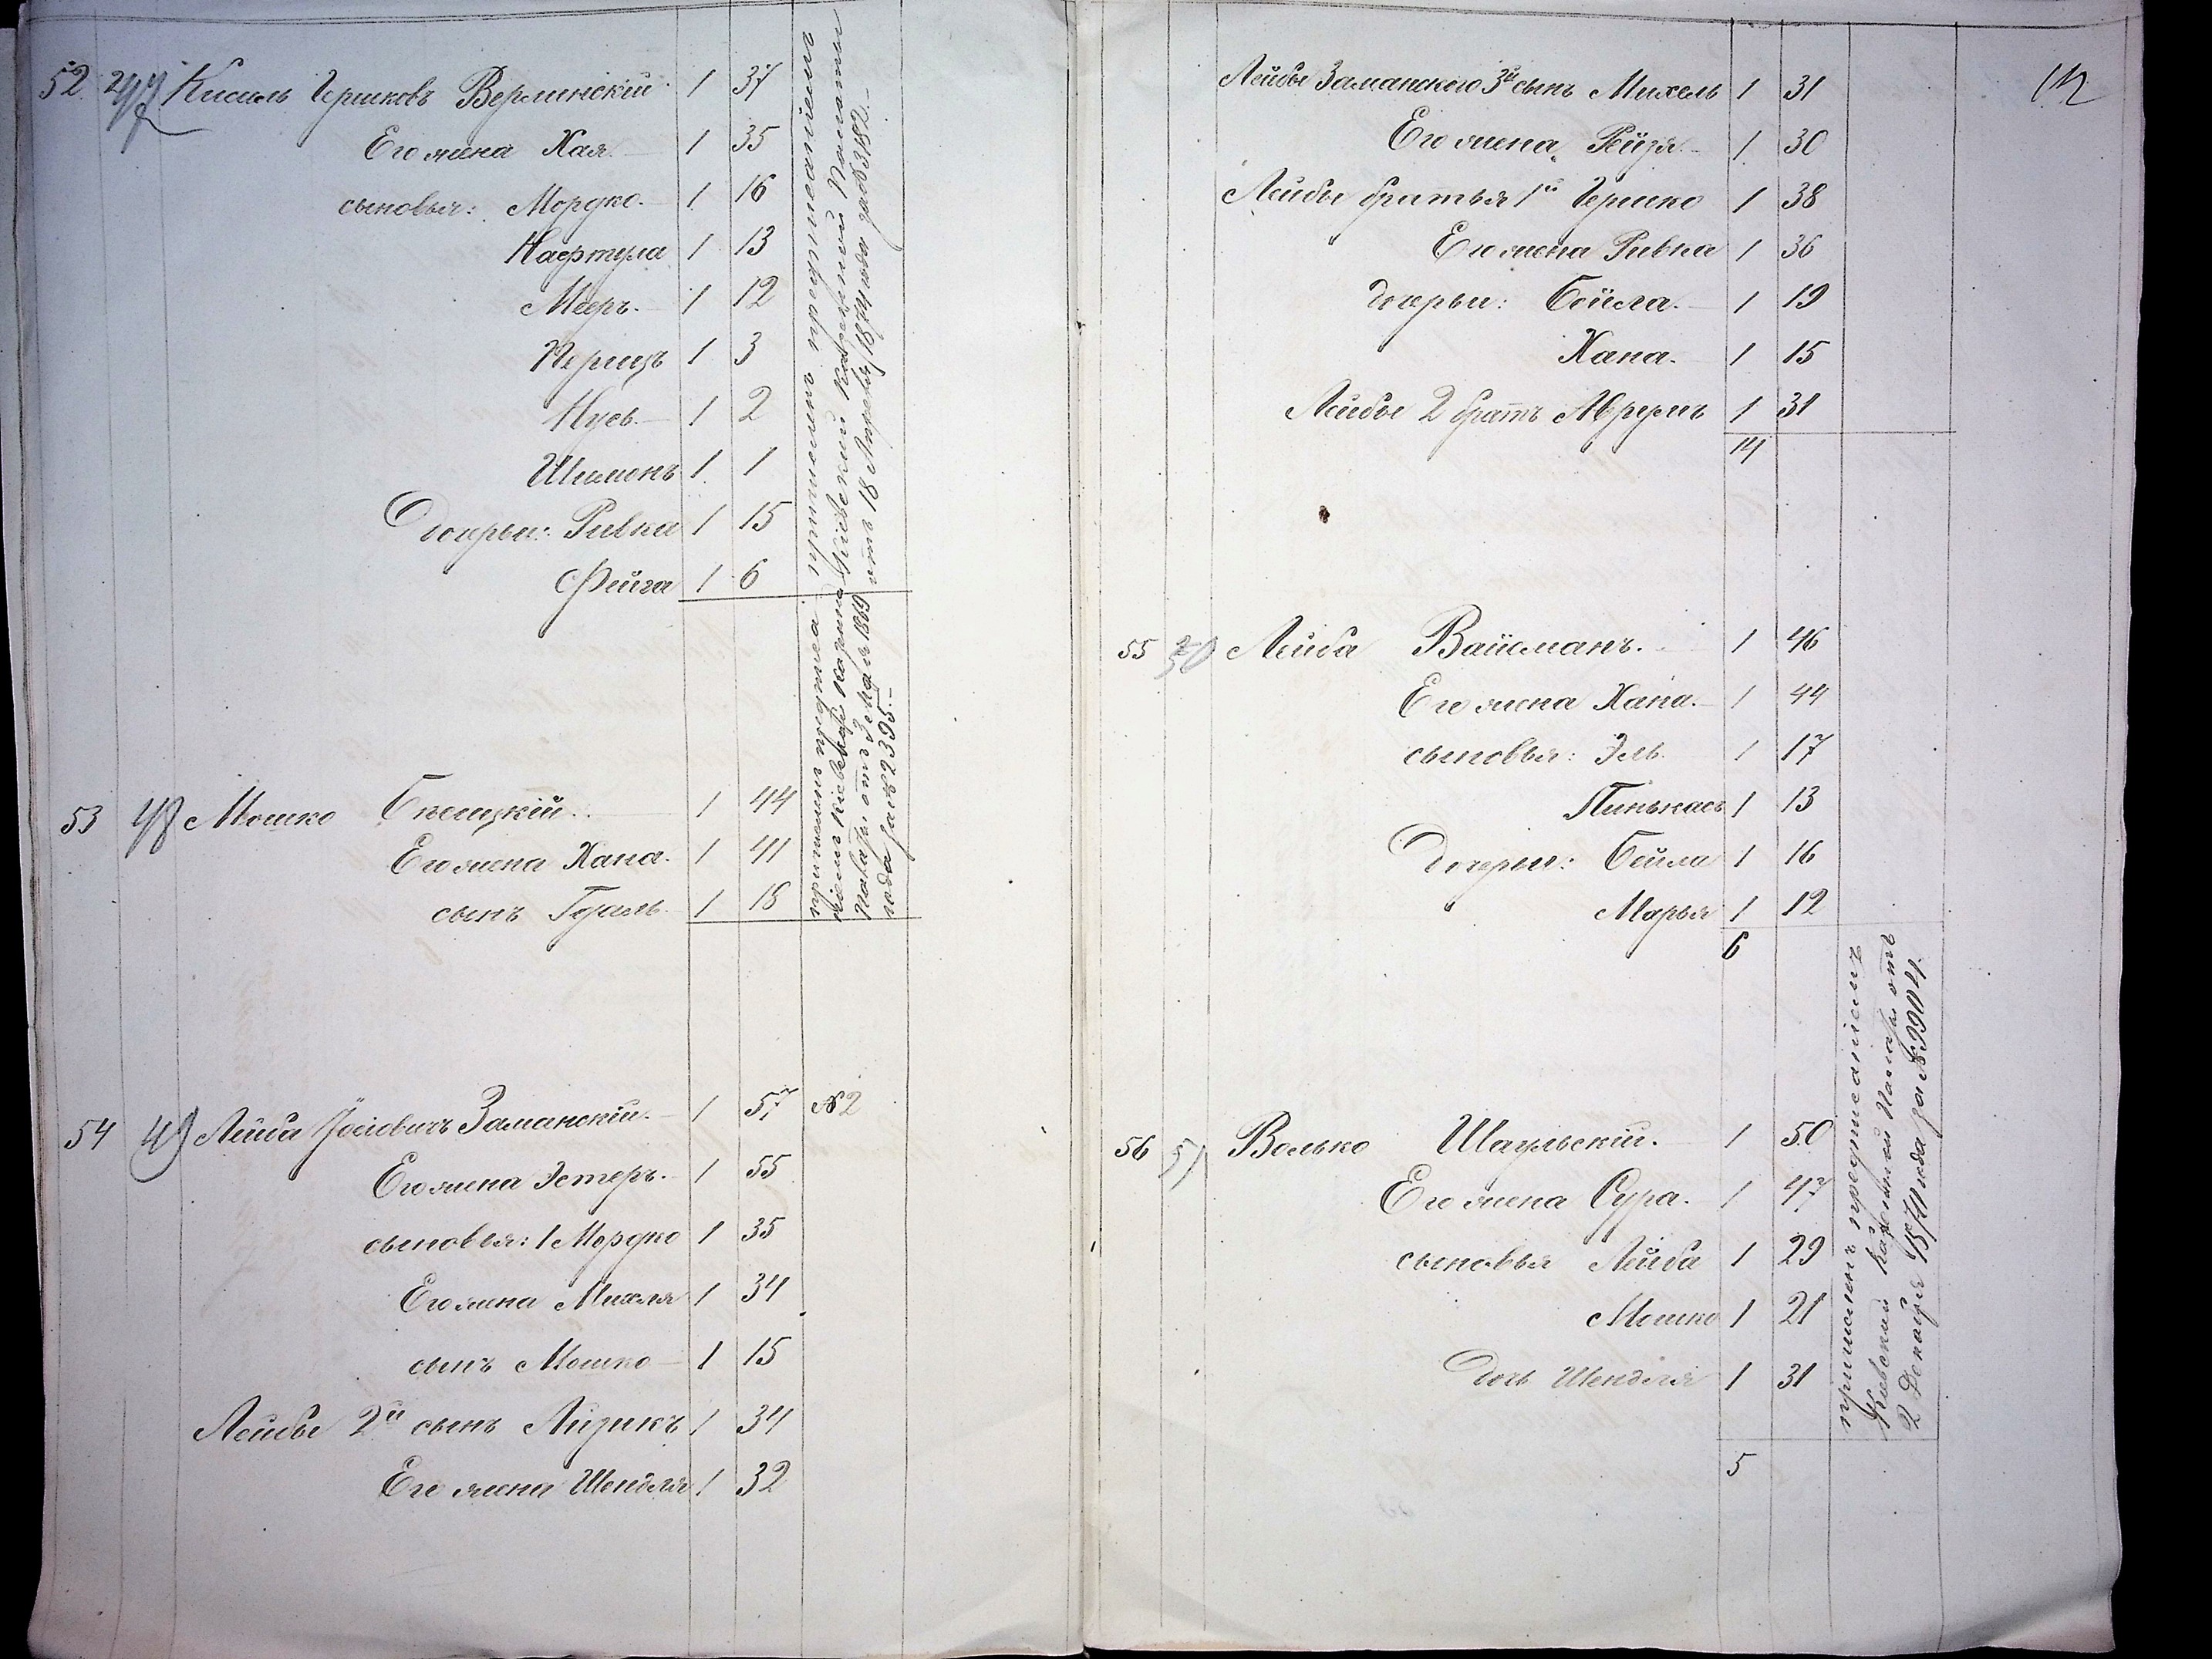 52 247 Кисиль Гершковъ Верлинскій 1 37
Его жена Хая 1 35
сыновья: Мордко. 1 16
Нафтула 1 13
Мееръ. 1 12
Перецъ 1 3
Нусь 1 2
Шимонъ 1 1
Дочери: Ривка 1 15
Фейга 1 6
причисленъ предписаніемъ
Кіевской Казенной Палаты
отъ 18 Апреля 1874 года за №3182.
53 48 Мошко Белицкій. 1 44
Его жена Хана. 1 41
сынъ Гдаль 1 18
причисленъ предписа
ніемъ Кіевской казенной
Палаты отъ 3 Мая 1869
года за №2395.
54 49 Лейба Іосіовичъ Заманскій. 1 57 №2
Его жена Эстеръ. 1 55
сыновья: 1 Мордко 1 35
Его жена Михля 1 34
сынъ Мошко 1 15
Лейбы 2й сынъ Айзикъ 1 34
Его жена Шендля 1 32
Лейбы Заманского 3й сынъ Михель 1 31
Его жена Рейзя. 1 30
Лейбы братья 1й Гершко 1 38
Его жена Ривка 1 36
дочери: Бейла. 1 19
Хана. 1 15
Лейбы 2 братъ Аврумъ 1 31
14
55 50 Лейба Вайсманъ. 1 46
Его жена Хана. 1 44
сыновья: Эль. 1 17
Пинькасъ 1 13
Дочери: Бейла 1 16
Марья 1 12
6
56 51 Волько Шаульскій. 1 50
Его жена Сура. 1 47
сыновья Лейба 1 29
Мошко 1 21
Дочь Шендля 1 31
5
причисленъ предписаніемъ
Кіевской Казенной Палаты отъ
2 Декабря 1871 года за №9904.